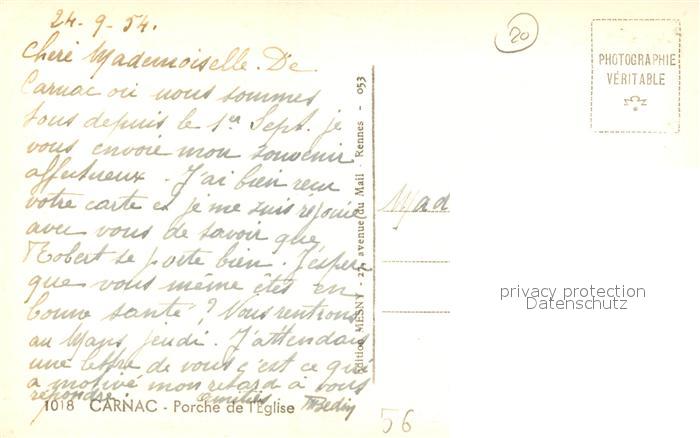 24-9-54.
20
Cheri Mademoiselle. De
Carnac où nous sommes
tous depuis le 1er Sept. je
vous envoie mon souvenir
affectueux. J'ai bien reçu
votre carte et je me suis réjouie
avec vous de savoir que
Robert se porte bien. J'espère
que vous même êtes en
bonne santé? Nous rentrons
au Mans jeudi. J'attendais
une lettre de vous c'est ce qui
a motivé mon retard à vous
répondre. amitiés
1018 CARNAC - Porche de l'Eglise
Edition MESNY - 27, avenue du Mail - Rennes - 053
PHOTOGRAPHIE
VÉRITABLE
Mad
privacy protection
Datenschutz
56